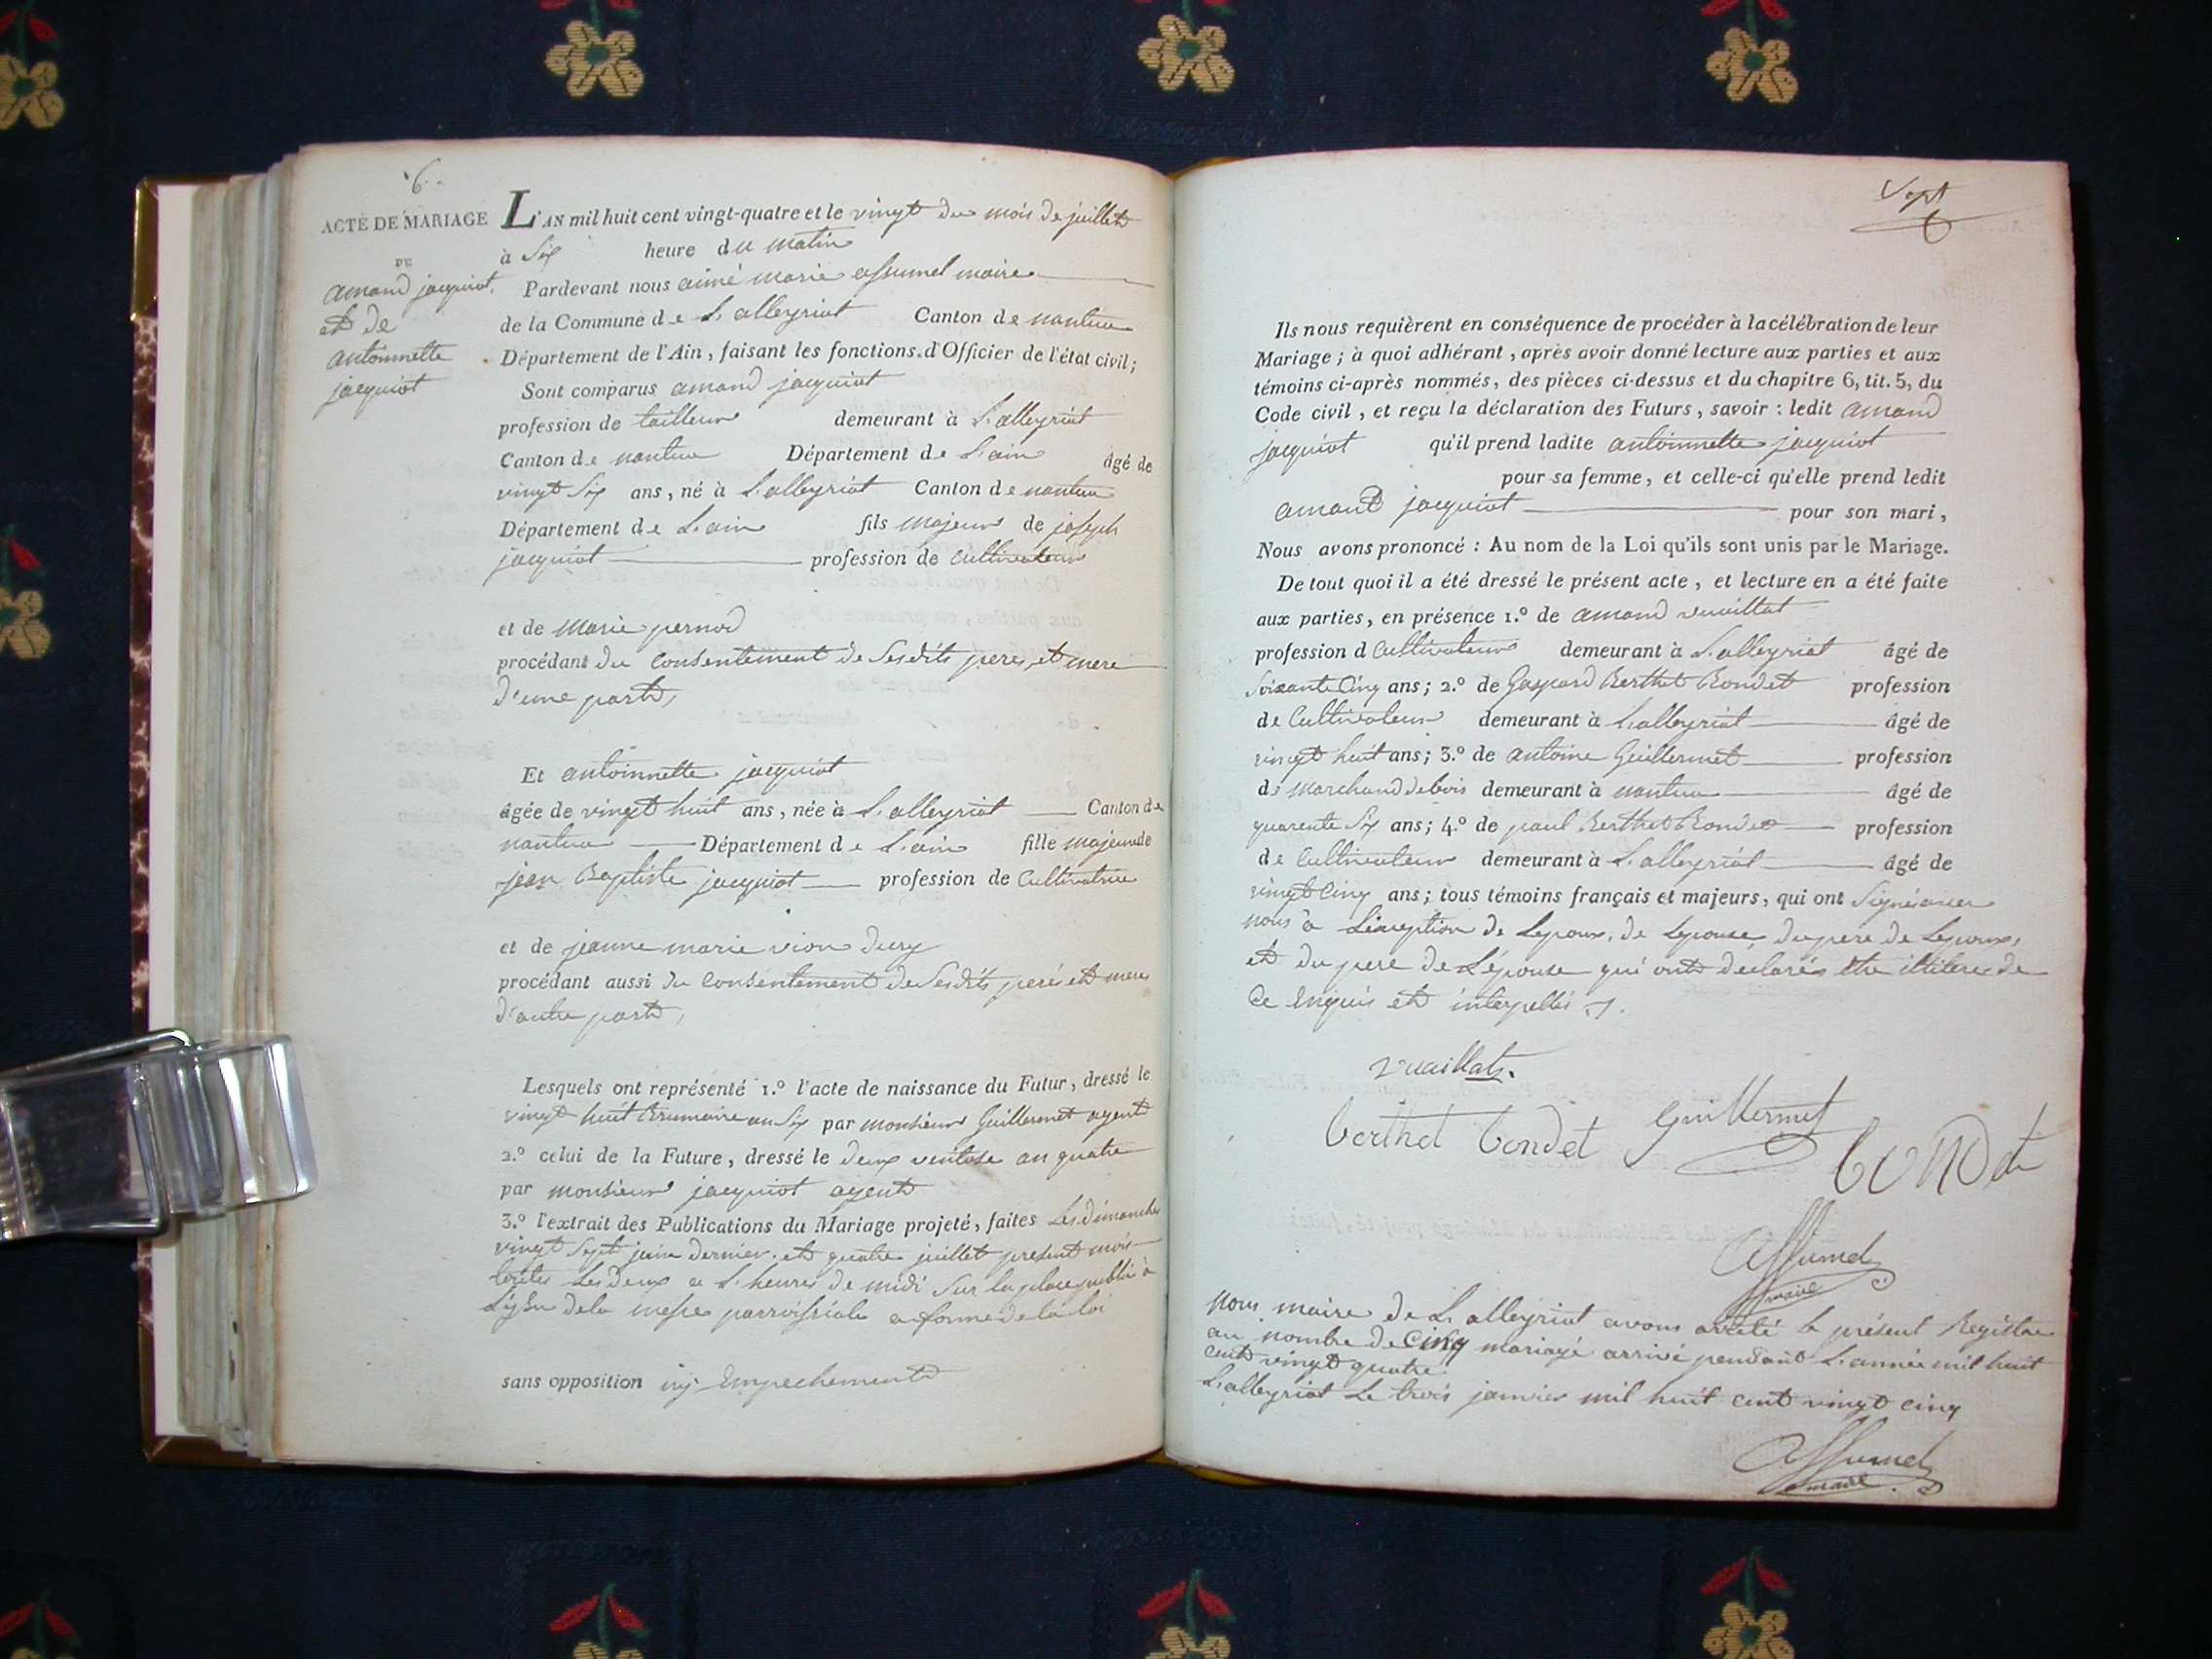 6
ACTE DE MARIAGE
DE
amand jacquiot
et de
antoinnette
jacquiot
L'AN mil huit cent vingt-quatre et le vingt du mois de juillet
à Six heure du matin
Pardevant nous aimé marie assumel maire
de la Commune de L'alleyriat Canton de nantua
Département de l'Ain, faisant les fonctions d'Officier de l'état civil;
Sont comparus amand jacquiot
profession de tailleur demeurant à L'alleyriat
Canton de nantua Département de L'ain âgé de
vingt Six ans, né à L'alleyriat Canton de nantua
Département de L'ain fils majeur de joseph
jacquiot profession de Cultivateur
et de Marie pernod
procédant du Consentement de Sesdits peres et mere
d'une part,
Et antoinnette jacquiot
âgée de vingt huit ans, née à L'alleyriat Canton de
nantua Département de L'ain fille majeure de
jean Baptiste jacquiot profession de Cultivatrice
et de jeanne marie vion dury
procédant aussi du Consentement de Sesdits peres et mere
d'autre part,
Lesquels ont représenté 1.º l'acte de naissance du Futur, dressé le
vingt huit Brumaire an Six par monsieur Guillermet agent
2.º celui de la Future, dressé le deux ventose an quatre
par monsieur jacquiot agent
3.º l'extrait des Publications du Mariage projeté, faites Les dimanches
vingt Sept juin dernier et quatre juillet present mois
toutes Les deux a L'heure de midi Sur la place publique à
L'issu de la messe parroissiale a forme de la loi
sans opposition ny Empechement
Sept
Ils nous requièrent en conséquence de procéder à la célébration de leur
Mariage; à quoi adhérant, après avoir donné lecture aux parties et aux
témoins ci-après nommés, des pièces ci-dessus et du chapitre 6, tit. 5, du
Code civil, et reçu la déclaration des Futurs, savoir: ledit amand
jacquiot qu'il prend ladite antoinnette jacquiot
pour sa femme, et celle-ci qu'elle prend ledit
amand jacquiot pour son mari,
Nous avons prononcé: Au nom de la Loi qu'ils sont unis par le Mariage.
De tout quoi il a été dressé le présent acte, et lecture en a été faite
aux parties, en présence 1.º de amand vuaillat
profession d Cultivateur demeurant à L'alleyriat âgé de
Soixante Cinq ans; 2.º de Gaspard Berthet Bondet profession
de Cultivateur demeurant à L'alleyriat âgé de
vingt huit ans; 3.º de antoine Guillermet profession
de Marchand de bois demeurant à nantua âgé de
quarente Six ans; 4.º de paul Berthet Bondet profession
de Cultivateur demeurant à L'alleyriat âgé de
vingt Cinq ans; tous témoins français et majeurs, qui ont Signés avec
nous à L'exception de Lepoux, de Lepouse, du pere de Lepoux,
et du pere de L'épouse qui ont declarés être illiteres de
Ce Enquis et interpellés
vuaillat.
berthet bondet Guillermet
bondet
Assumel
maire
Nous maire de L'alleyriat avons arreté le présent Registre
au nombre de Cinq mariage arrivé pendant L'année mil huit
cent vingt quatre
L'alleyriat Le trois janvier mil huit cent vingt cinq
Assumel
maire